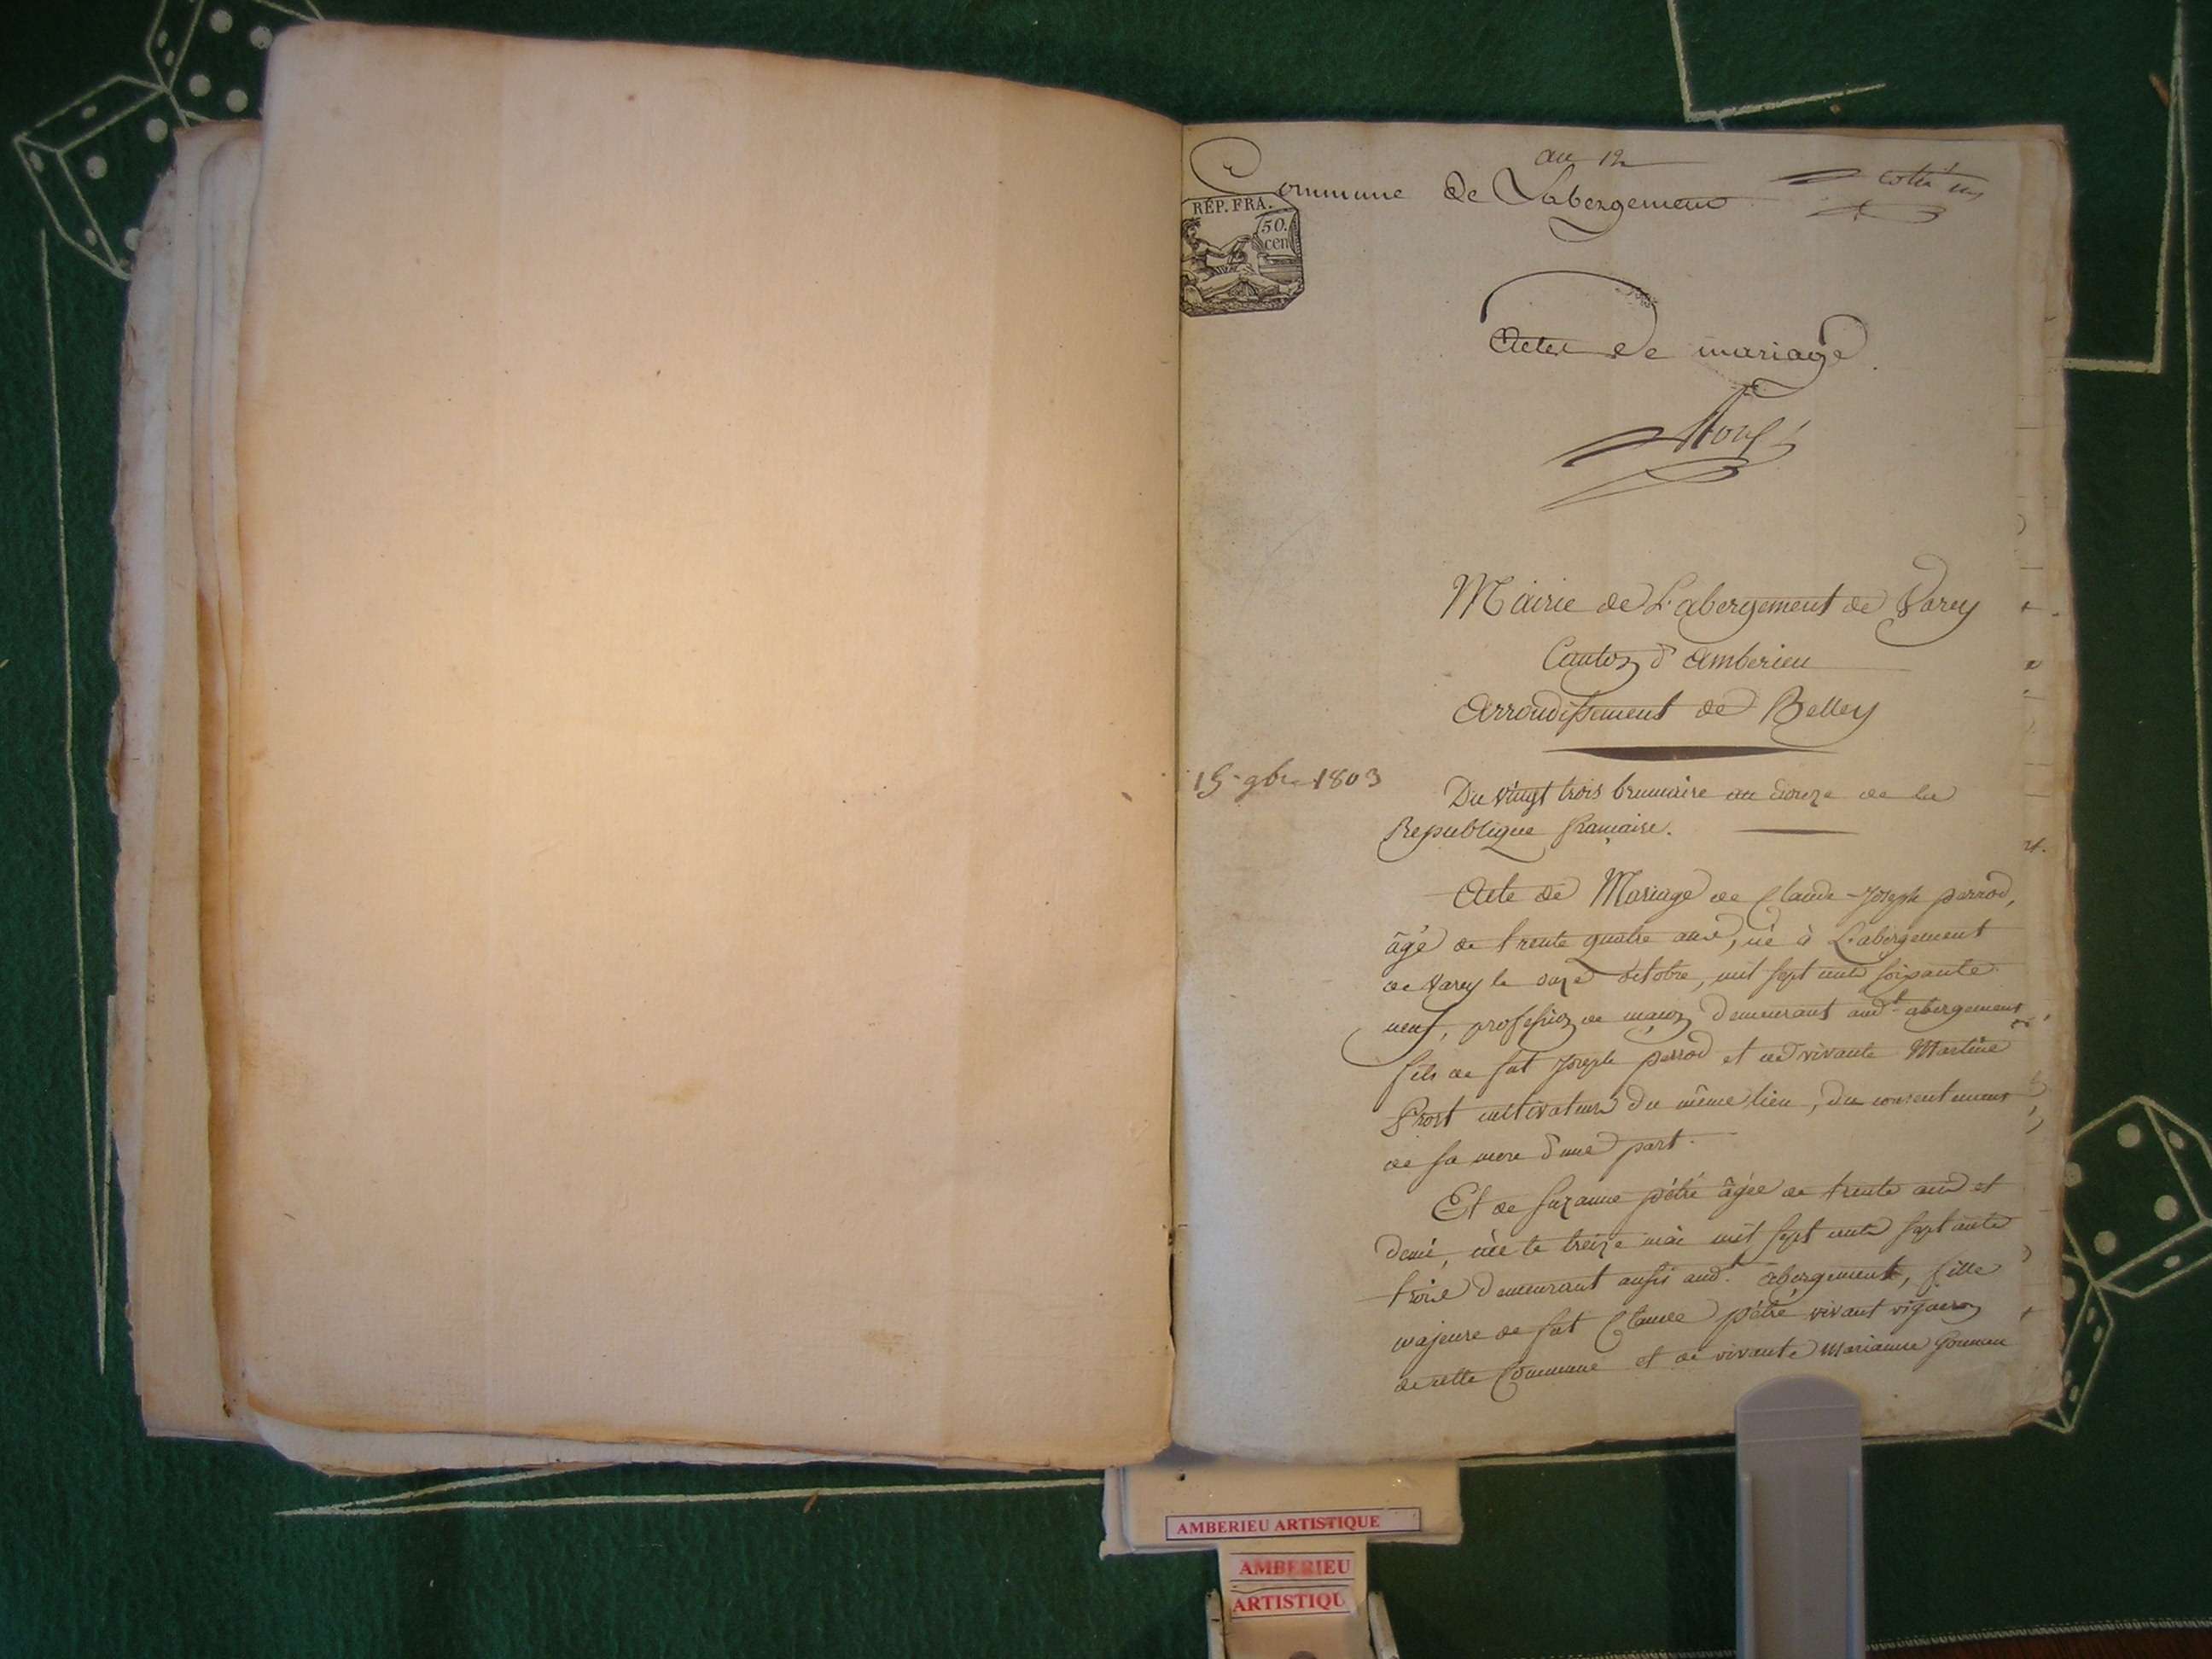 an 12
Commune de Labergement
coté un
REP. FRA.
50.
cen
Actes de mariage
Mairie de L'abergement de Varey
Canton d'Amberieu
Arrondissement de Belley
15 9bre 1803
Du vingt trois brumaire an douze de la
Republique française.
Acte de Mariage de Claude-Joseph perrod,
âgé de trente quatre ans, né à L'abergement
de Varey le onze octobre, mil sept cents soixante
neuf, profession de maçon demeurant audt abergement
fils de fut Joseph perrod et de vivante Martine
Prost cultivateurs du même lieu, du consentement
de sa mere d'une part.
Et de suzanne pétré âgée de trente ans et
demi, née le treize mai mil sept cents septante
trois demeurant aussi audt. abergement, fille
majeure de fut Claude pétré vivant vigneron
de cette Commune et de vivante marianne
AMBERIEU ARTISTIQUE
AMBERIEU
ARTISTIQU